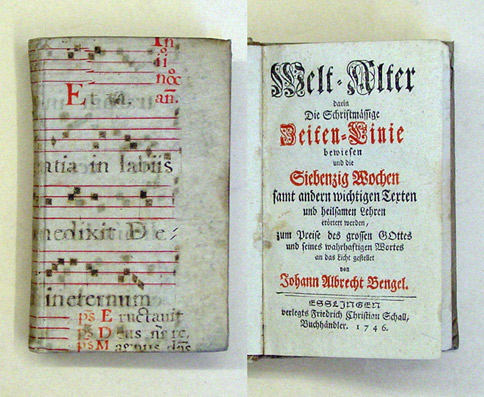 In
ii
noc
añ.
E
atia in labiis
nedixit De-
ineternum
ps Eructavit
ps Deus
ps Magnus dñs
Welt-Alter
darin
Die Schriftmässige
Zeiten-Linie
bewiesen
und die
Siebenzig Wochen
samt andern wichtigen Texten
und heilsamen Lehren
erörtert werden,
zum Preise des grossen GOttes
und seines wahrhaftigen Wortes
an das Licht gestellet
von
Johann Albrecht Bengel.
ESSLINGEN
verlegts Friedrich Christian Schall,
Buchhändler. 1746.